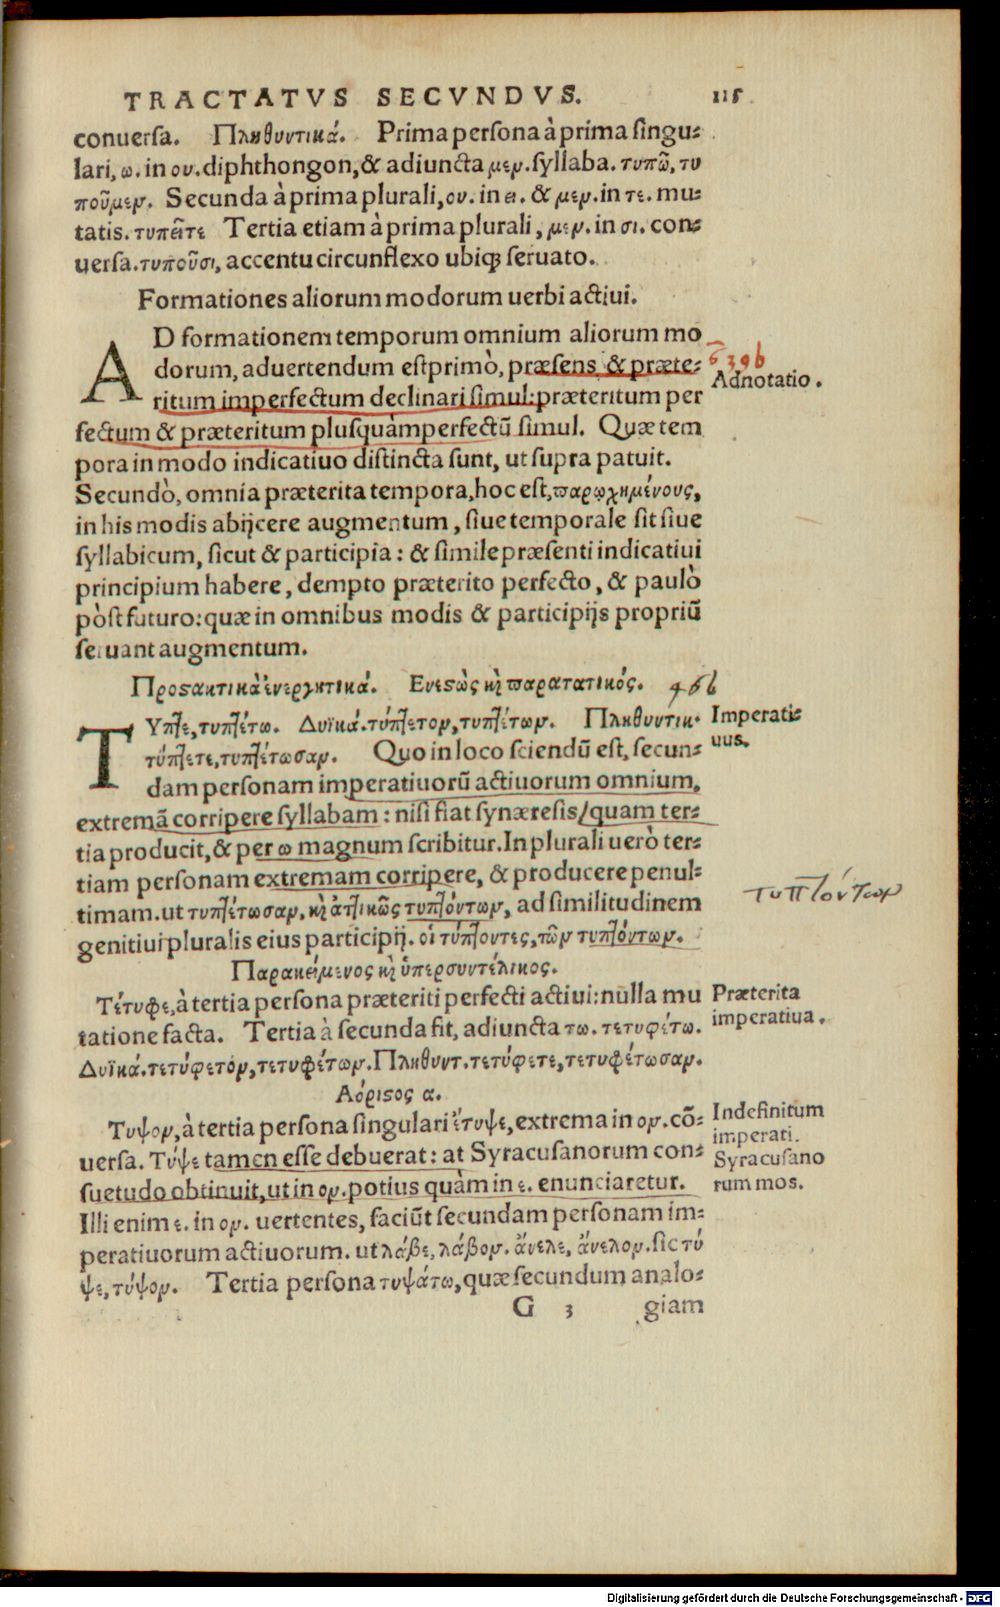 TRACTATVS SECVNDVS. 115
conuersa. Πληθυντικά. Prima persona à prima singu-
lari, ω. in ου. diphthongon, & adiuncta μεν. syllaba. τυπῶ, τυ
ποῦμεν. Secunda à prima plurali, ου. in ει. & μεν. in τε. mu-
tatis. τυπεῖτε Tertia etiam à prima plurali, μεν. in σι. con-
uersa. τυποῦσι, accentu circunflexo ubiq; seruato.
Formationes aliorum modorum uerbi actiui.
AD formationem temporum omnium aliorum mo
dorum, aduertendum est primò, præsens & præte-
ritum imperfectum declinari simul: præteritum per
fectum & præteritum plusquàmperfectũ simul. Quæ tem
pora in modo indicatiuo distincta sunt, ut supra patuit.
Secundò, omnia præterita tempora, hoc est, παρῳχημένους,
in his modis abijcere augmentum, siue temporale sit siue
syllabicum, sicut & participia: & simile præsenti indicatiui
principium habere, dempto præterito perfecto, & paulò
pòst futuro: quæ in omnibus modis & participijs propriũ
seruant augmentum.
6396
Adnotatio.
Προστακτικὰ ἐνεργητικά. Ενεστὼς καὶ παρατατικός. 466
ΤΥπτε, τυπτέτω. Δυϊκά. τύπτετον, τυπτέτων. Πληθυντικ.
τύπτετε, τυπτέτωσαν. Quo in loco sciendũ est, secun-
dam personam imperatiuorũ actiuorum omnium,
extremã corripere syllabam: nisi fiat synæresis/quam ter-
tia producit, & per ω magnum scribitur. In plurali uerò ter-
tiam personam extremam corripere, & producere penul-
timam. ut τυπτέτωσαν, καὶ ἀττικῶς τυπτόντων, ad similitudinem
genitiui pluralis eius participij. οἱ τύπτοντες, τῶν τυπτόντων.
Imperati-
uus.
τυπτόντων
Παρακείμενος καὶ ὑπερσυντέλικος.
Τέτυφε, à tertia persona præteriti perfecti actiui: nulla mu
tatione facta. Tertia à secunda fit, adiuncta τω. τετυφέτω.
Δυϊκά. τετύφετον, τετυφέτων. Πληθυντ. τετύφετε, τετυφέτωσαν.
Præterita
imperatiua.
Αόριστος α.
Τυψον, à tertia persona singulari ἔτυψε, extrema in ον. cõ-
uersa. Τύψε tamen esse debuerat: at Syracusanorum con-
suetudo obtinuit, ut in ον. potius quàm in ε. enunciaretur.
Illi enim ε. in ον. uertentes, faciũt secundam personam im-
peratiuorum actiuorum. ut λάβε, λάβον. ἄνελε, ἄνελον. sic τύ
ψε, τύψον. Tertia persona τυψάτω, quæ secundum analo-
Indefinitum
imperati.
Syracusano
rum mos.
G 3 giam
Digitalisierung gefördert durch die Deutsche Forschungsgemeinschaft - DFG